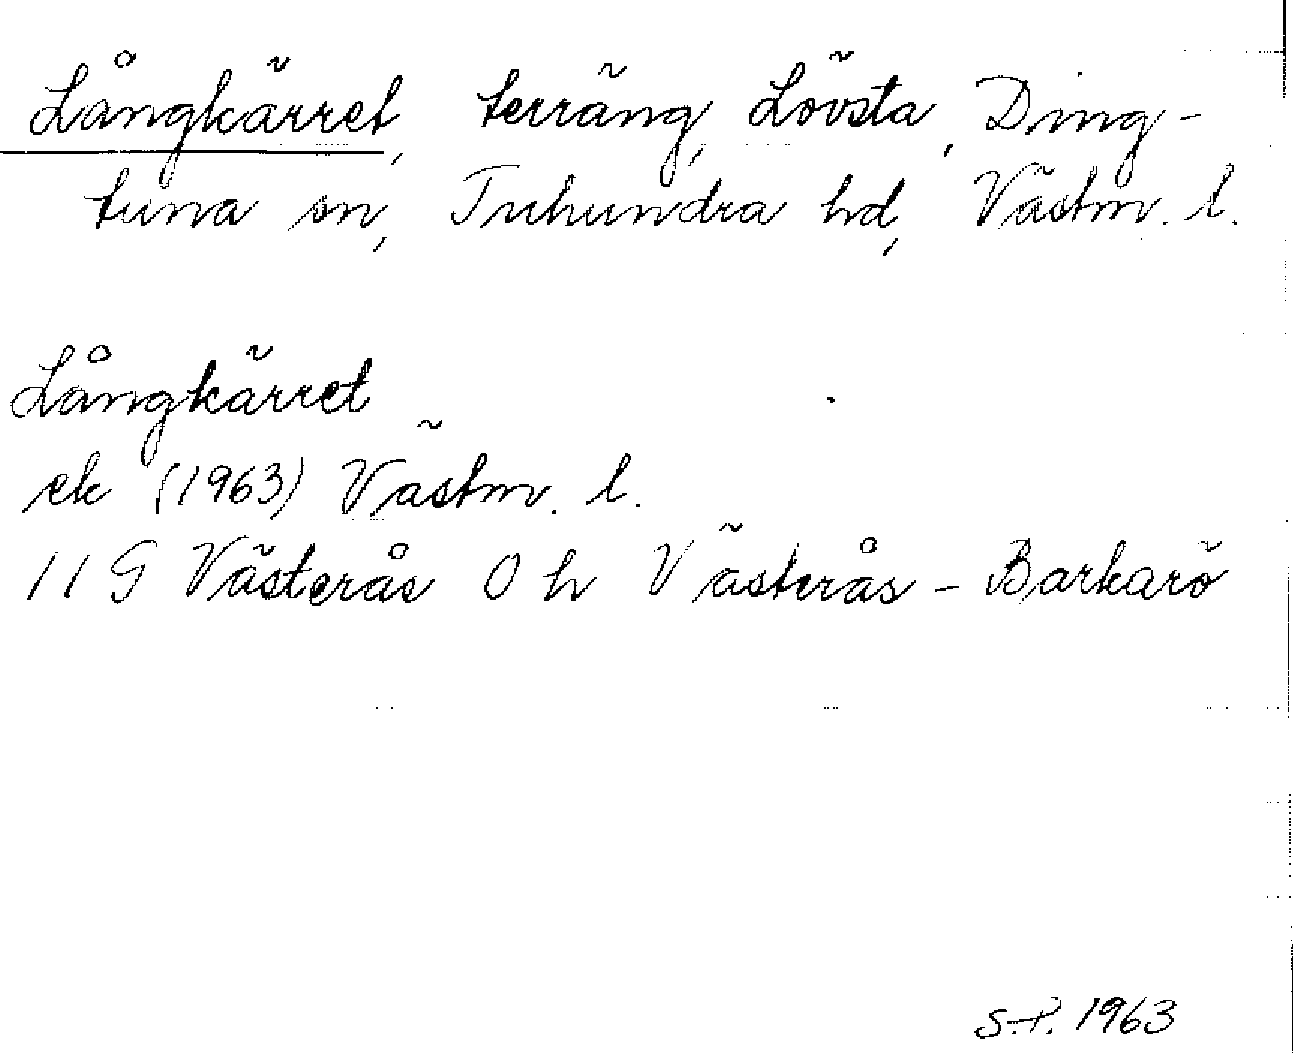 Långkärret, terräng, Lövsta, Ding-
tuna sn, Tuhundra hd, Västm. l.
Långkärret
ek (1963) Västm. l.
11 G Västerås 0 h Västerås - Barkarö
S.P. 1963